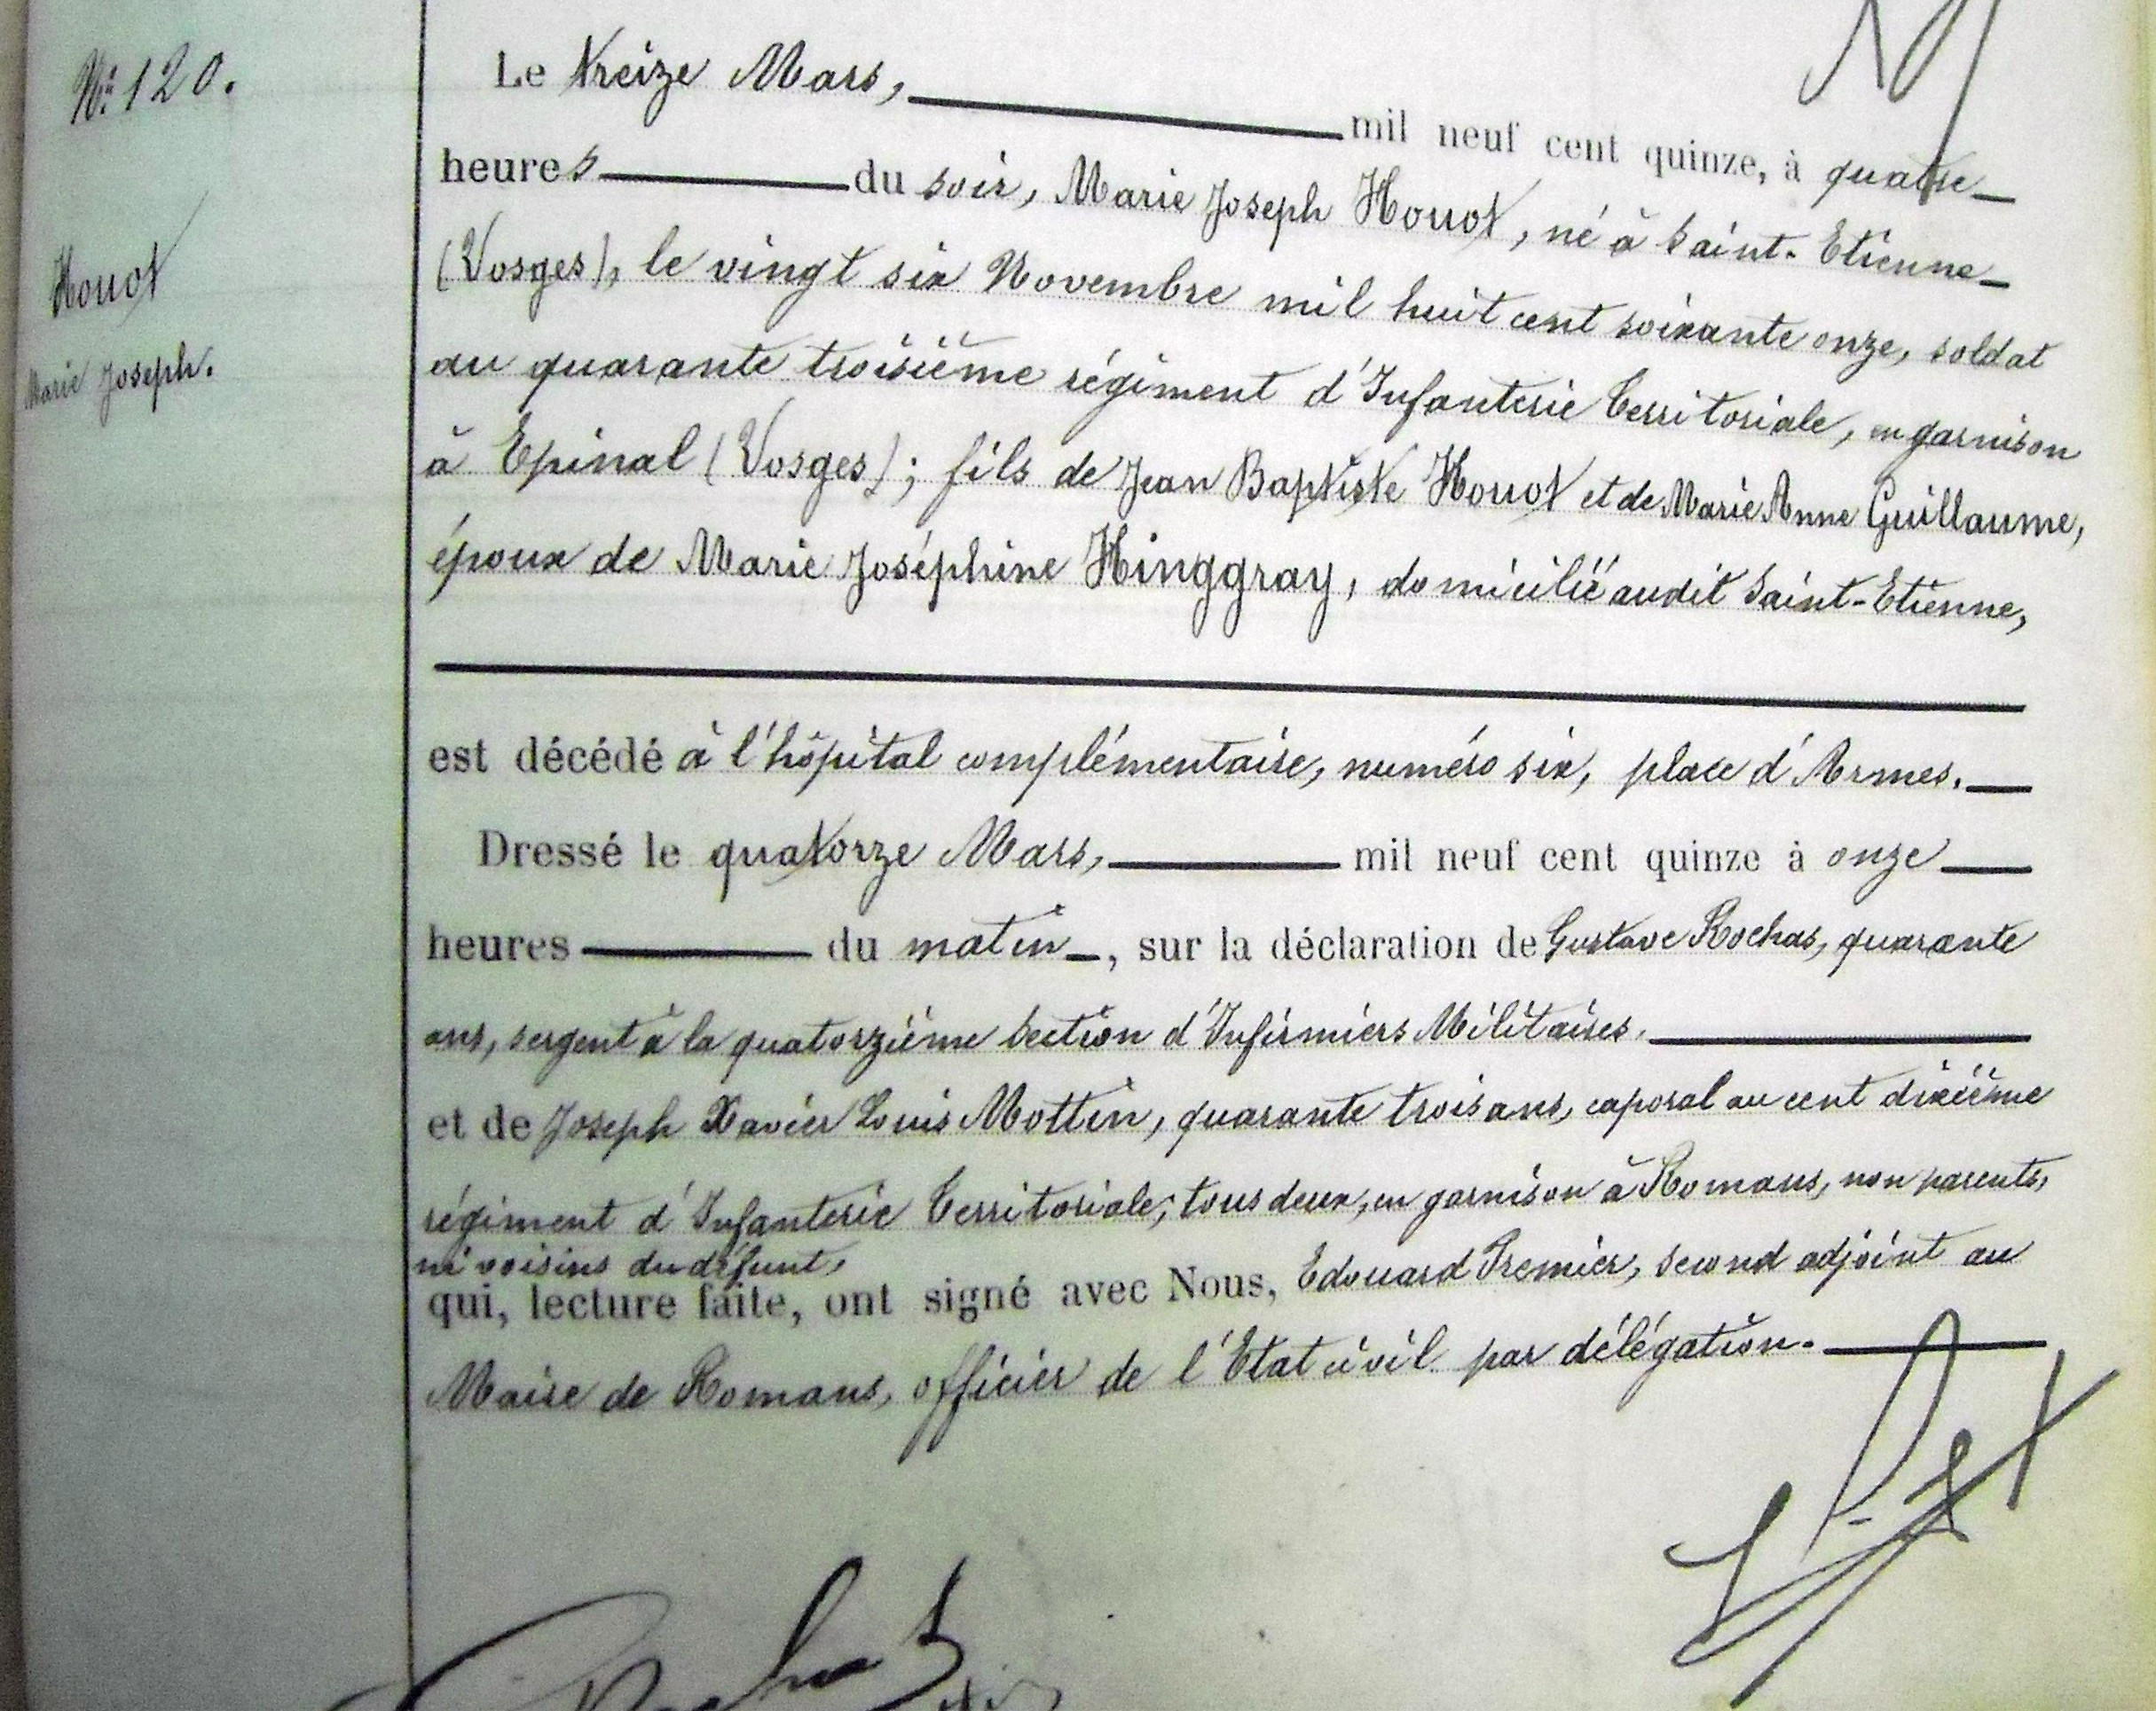 N° 120.
Houot
Marie Joseph.
Le treize Mars, mil neuf cent quinze, à quatre
heures du soir, Marie Joseph Houot, né à Saint-Etienne
(Vosges), le vingt six Novembre mil huit cent soixante onze, soldat
au quarante troisième régiment d'Infanterie Territoriale, en garnison
à Epinal (Vosges); fils de Jean Baptiste Houot et de Marie Anne Guillaume,
époux de Marie Joséphine Hinggray, domicilié audit Saint-Etienne,
est décédé à l'hôpital complémentaire, numéro six, place d'Armes.
Dressé le quatorze Mars, mil neuf cent quinze à onze
heures du matin, sur la déclaration de Gustave Rochas, quarante
ans, sergent à la quatorzième Section d'Infirmiers Militaires.
et de Joseph Xavier Louis Mottin, quarante trois ans, caporal au cent dixième
régiment d'Infanterie Territoriale; tous deux, en garnison à Romans, non parents,
ni voisins du défunt,
qui, lecture faite, ont signé avec Nous, Edouard Premier, second adjoint au
Maire de Romans, officier de l'Etat civil par délégation.